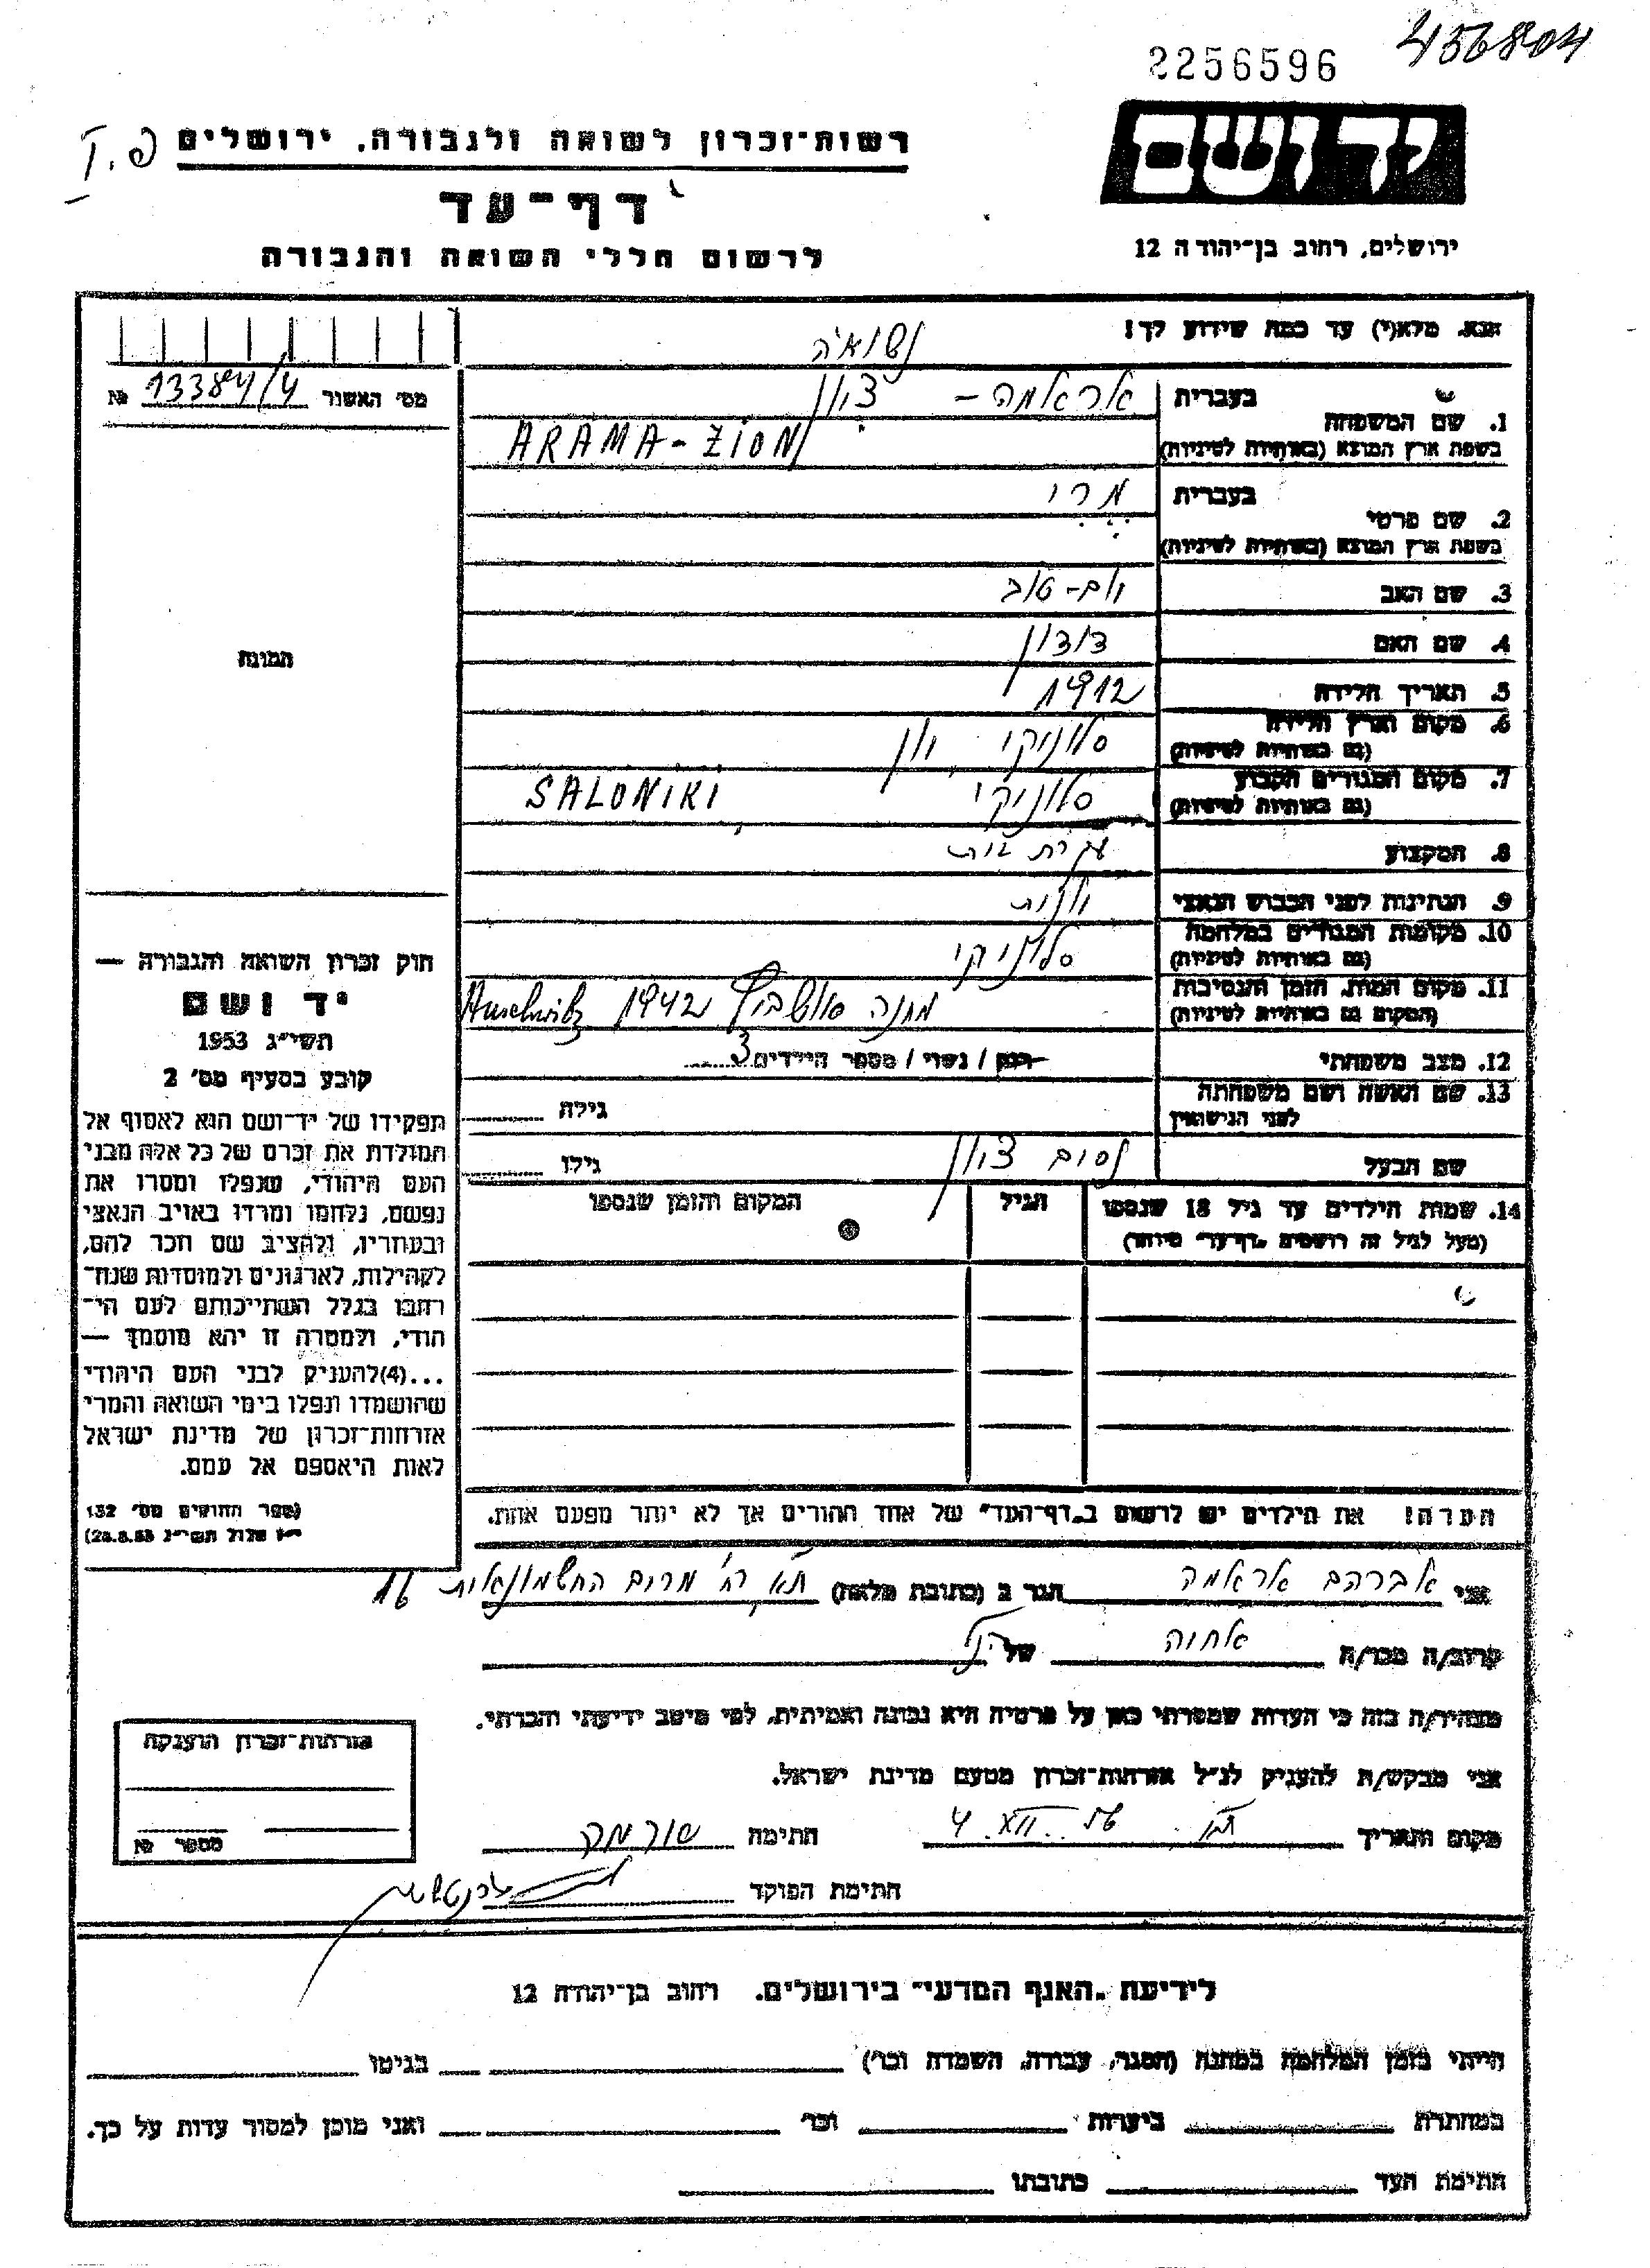 456804
2256596
יד ושם
ירושלים, רחוב בן־יהודה 12
רשות־זכרון לשואה ולגבורה, ירושלים
דף־עד
לרשום חללי השואה והגבורה
אנא, מלא(י) עד כמה שידוע לך!
נשואה
מס׳ האשור 13384/4 №
1. שם המשפחה
בעברית אראמה - ציון
בשפת ארץ המוצא (באותיות לטיניות) ARAMA-ZION
2. שם פרטי
בעברית מרי
בשפת ארץ המוצא (באותיות לטיניות)
3. שם האב יום-טוב
4. שם האם
5. תאריך הלידה 1912
6. מקום וארץ הלידה סלוניקי, יון
(גם באותיות לטיניות)
7. מקום המגורים הקבוע סלוניקי SALONIKI
(גם באותיות לטיניות)
8. המקצוע עקרת בית
9. הנתינות לפני הכבוש הנאצי יונית
10. מקומות המגורים במלחמה סלוניקי
(גם באותיות לטיניות)
11. מקום המות, הזמן והנסיבות מחנה 1942 Auschwitz
(המקום גם באותיות לטיניות)
12. מצב משפחתי רוק / נשוי / מספר הילדים 3
13. שם האשה ושם משפחתה
לפני הנישואין
גילה
שם הבעל נסים ציון גילו
14. שמות הילדים עד גיל 18 שנספו
(מעל לגיל זה רושמים „דף־עד״ מיוחד)
הגיל
המקום והזמן שנספו
הערה! את הילדים יש לרשום ב„דף־העד״ של אחד ההורים אך לא יותר מפעם אחת.
התמונה
חוק זכרון השואה והגבורה —
יד ושם
תשי״ג 1953
קובע בסעיף מס׳ 2
תפקידו של יד־ושם הוא לאסוף אל
המולדת את זכרם של כל אלה מבני
העם היהודי, שנפלו ומסרו את
נפשם, נלחמו ומרדו באויב הנאצי
ובעוזריו, ולהציב שם וזכר להם,
לקהילות, לארגונים ולמוסדות שנח־
רבו בגלל השתייכותם לעם הי־
הודי, ולמטרה זו יהא מוסמך —
...(4)להעניק לבני העם היהודי
שהושמדו ונפלו בימי השואה והמרי
אזרחות־זכרון של מדינת ישראל
לאות היאספם אל עמם.
(ספר החוקים מס׳ 132
י״ז אלול תשי״ג 28.8.53)
אני אברהם אראמה הגר ב (כתובת מלאה) ת״א רח׳ מרום החשמונאית 16
קרוב/ה מכר/ה אחיה של הנ״ל
מצהיר/ה בזה כי העדות שמסרתי כאן על פרטיה היא נכונה ואמיתית, לפי מיטב ידיעתי והכרתי.
אני מבקש/ת להעניק לנ״ל אזרחות־זכרון מטעם מדינת ישראל.
מקום ותאריך 4.XII. חתימה
חתימת הפוקד
אזרחות־זכרון הוענקה
מספר №
לידיעת „האגף המדעי״ בירושלים, רחוב בן־יהודה 12
הייתי בזמן המלחמה במחנה (הסגר, עבודה, השמדה וכו׳) בגיטו
במחתרת ביערות וכו׳ ואני מוכן למסור עדות על כך.
חתימת העד כתובתו